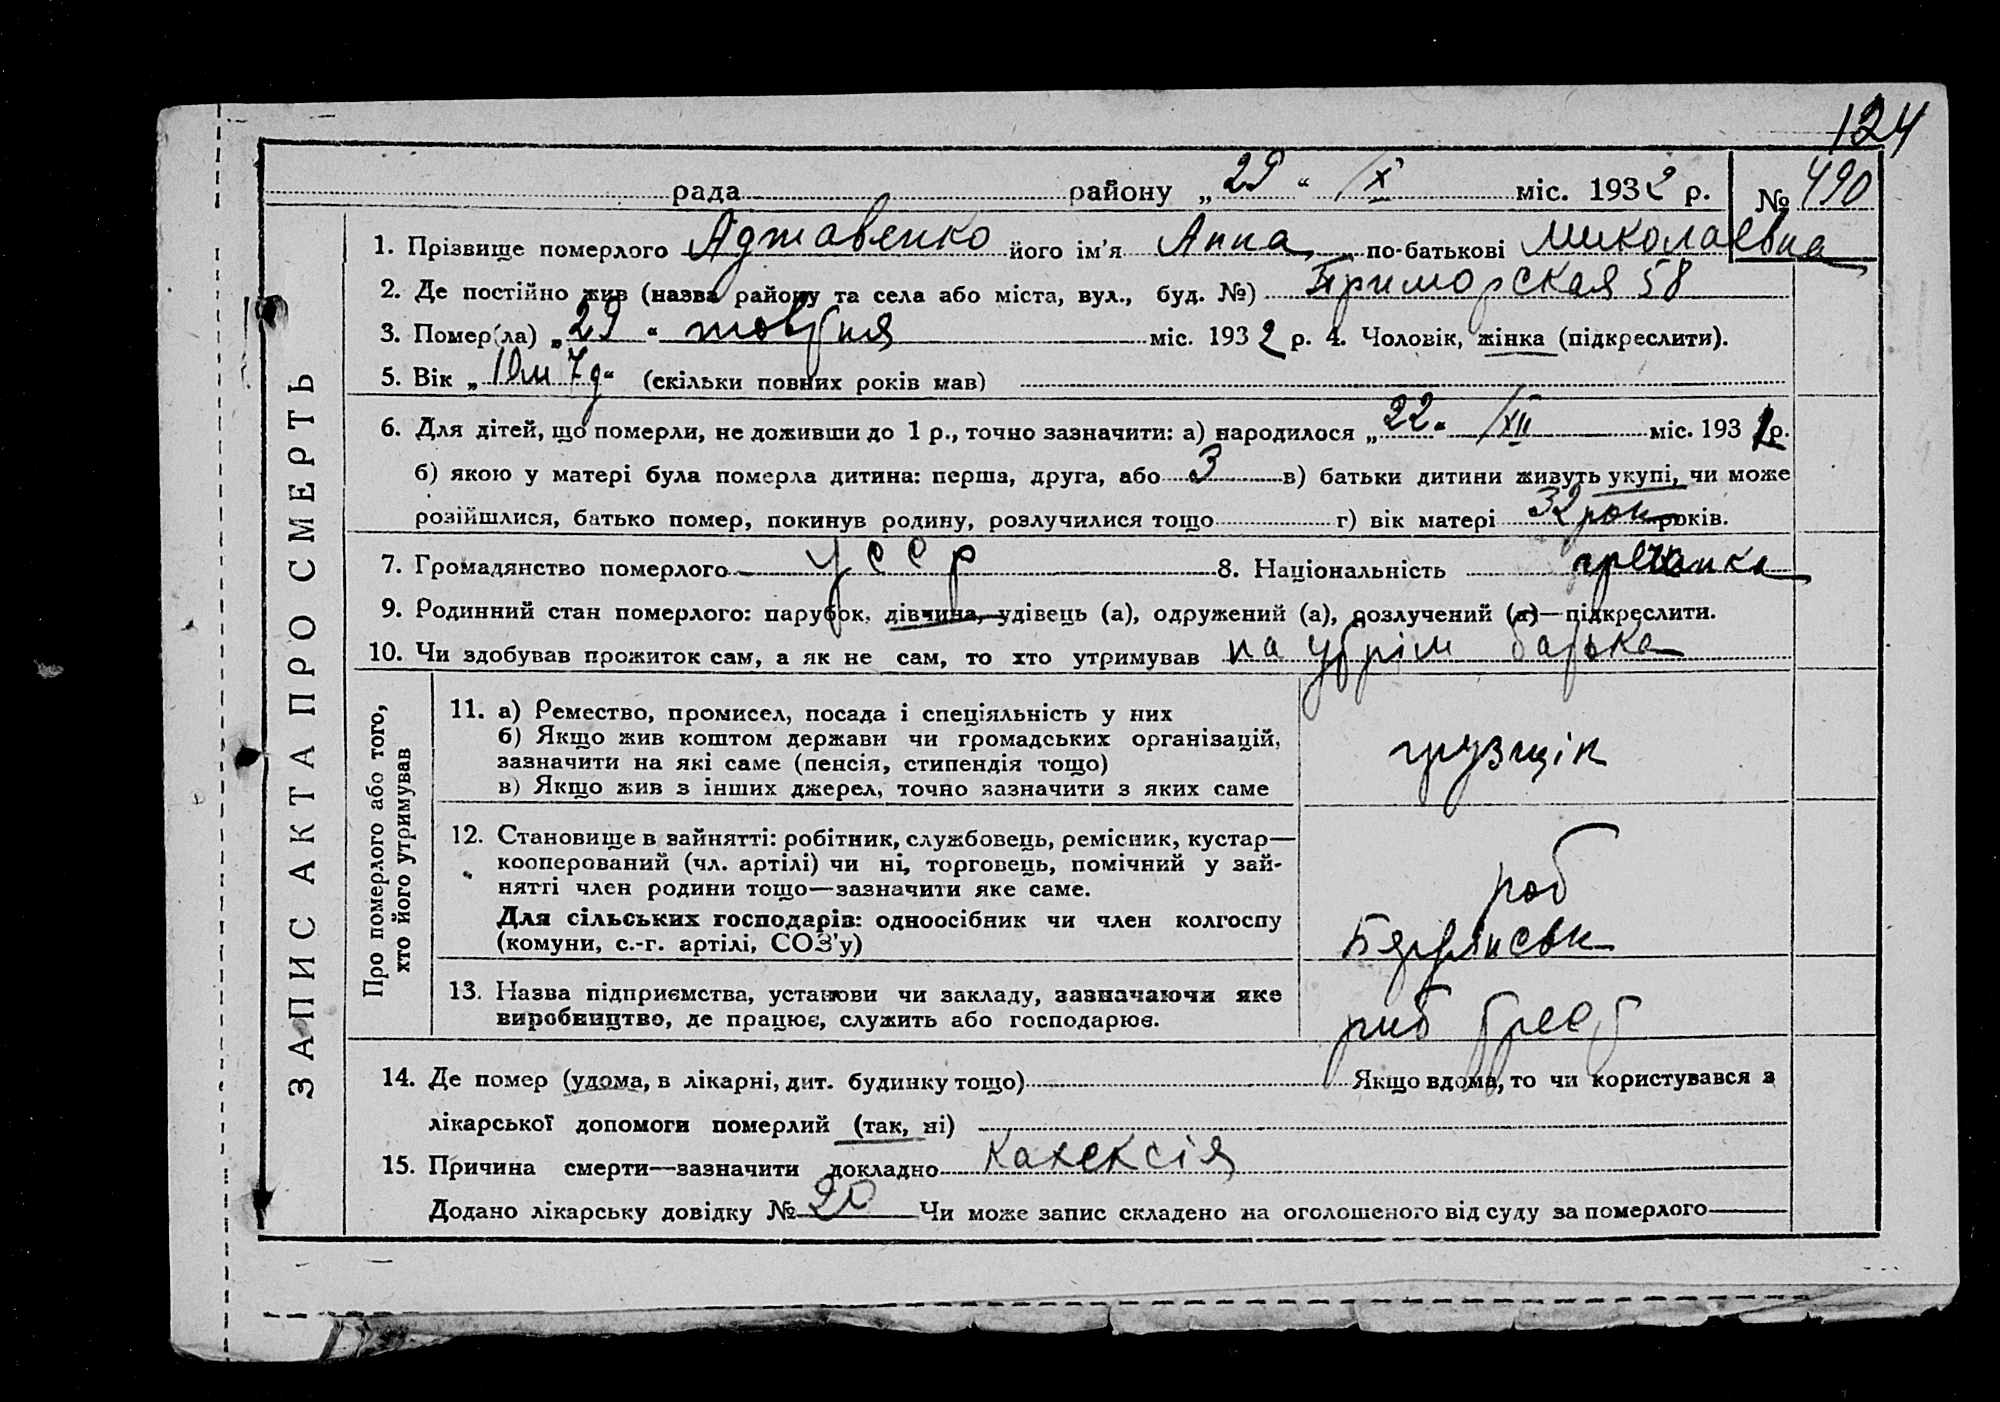 124
рада района „29“ /X міс. 1932 р. № 490
1. Прізвище померлого Аджавенко його ім’я Анна по-батькові Миколаевна
2. Де постійно жив (назва району та села або міста, вул., буд. №) Приморская 58
3. Помер(ла) „29“ жовтня міс. 1932 р. 4. Чоловік, жінка (підкреслити).
5. Вік „10м 7д“ (скільки повних років мав)
6. Для дітей, що померли, не доживши до 1 р., точно зазначити: а) народилося „22“ /XII міс. 1931 р.
б) якою у матері була померла дитина: перша, друга, або 3 в) батьки дитини живуть укупі, чи може
розійшлися, батько помер, покинув родину, розлучилися тощо г) вік матері 32 рок років.
7. Громадянство померлого УССР 8. Національність гречанка
9. Родинний стан померлого: парубок, дівчина, удівець (а), одружений (а), розлучений (а)—підкреслити.
10. Чи здобував прожиток сам, а як не сам, то хто утримував на утрім батька
ЗАПИС АКТА ПРО СМЕРТЬ
Про померлого або того,
хто його утримував
11. а) Ремество, промисел, посада і спеціяльність у них
б) Якщо жив коштом держави чи громадських організацій,
зазначити на які саме (пенсія, стипендія тощо)
в) Якщо жив з інших джерел, точно зазначити з яких саме
грузщік
12. Становище в зайнятті: робітник, службовець, ремісник, кустар—
кооперований (чл. артілі) чи ні, торговець, помічний у зай-
нятті член родини тощо—зазначити яке саме.
Для сільських господарів: одноосібник чи член колгоспу
(комуни, с.-г. артілі, СОЗ’у)
роб
Бердянськ
13. Назва підприємства, установи чи закладу, зазначаючи яке
виробництво, де працює, служить або господарює.
риб
14. Де помер (удома, в лікарні, дит. будинку тощо) Якщо вдома, то чи користувався з
лікарської допомоги померлий (так, ні)
15. Причина смерти—зазначити докладно Кахексія
Додано лікарську довідку № 20 Чи може запис складено на оголошеного від суду за померлого